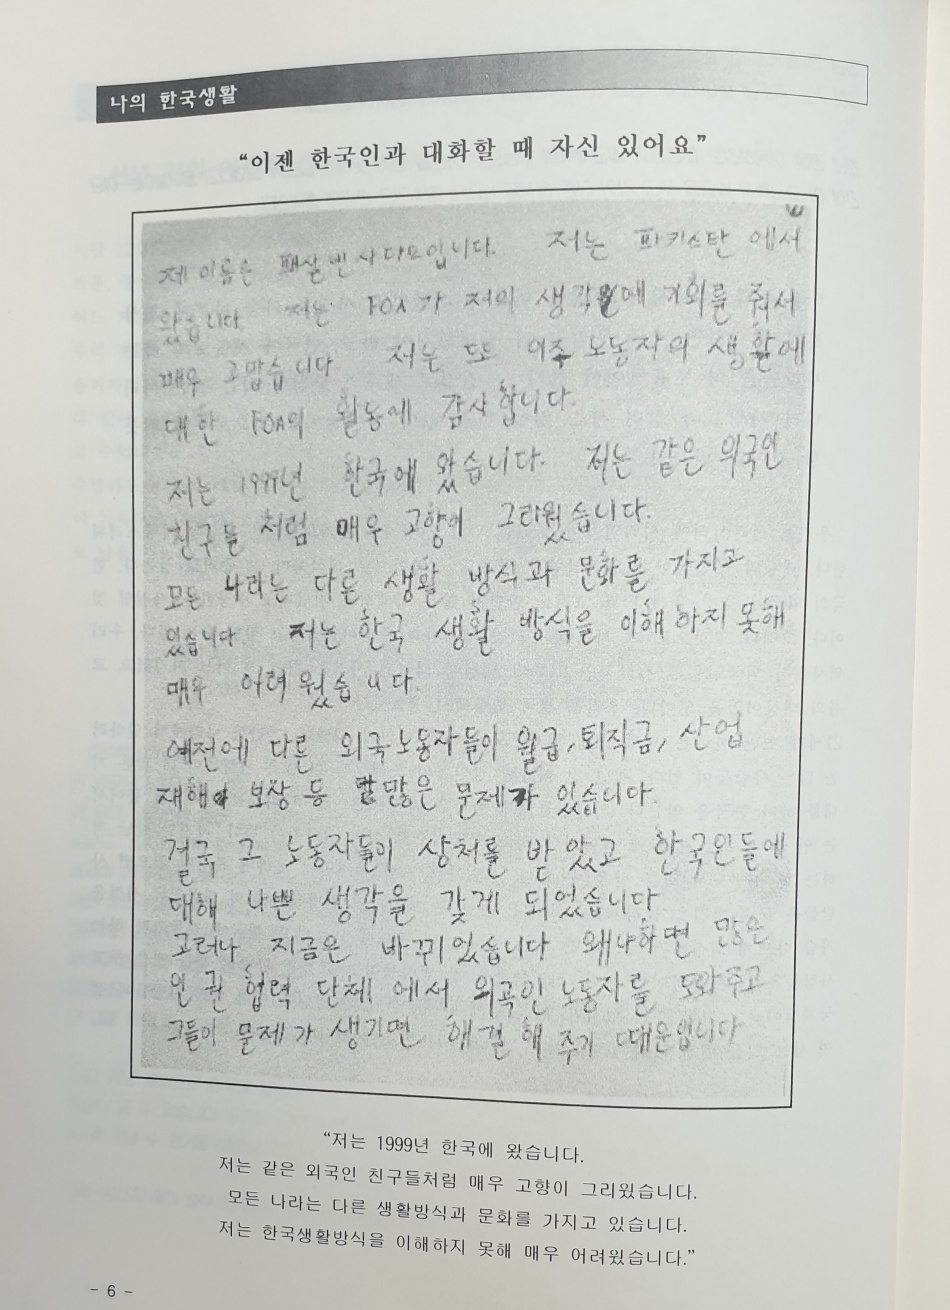 나의 한국생활
“이젠 한국인과 대화할 때 자신 있어요”
제 이름은 입니다. 저는 파키스탄 에서
왔습니다 저는 FOA가 저의 생각에 기회를 줘서
매우 고맙습니다 저는 또 노동자의 생활에
대한 FOA의 활동에 감사합니다.
저는 1999년 한국에 왔습니다. 저는 같은 외국인
친구들 처럼 매우 고향이 그리웠습니다.
모든 나라는 다른 생활 방식과 문화를 가지고
있습니다 저는 한국 생활 방식을 이해 하지 못해
매우 어려웠습니다.
예전에 다른 외국노동자들이 월급, 퇴직금, 산업
재해 보상 등 많은 문제가 있습니다.
결국 그 노동자들이 상처를 받았고 한국인들에
대해 나쁜 생각을 갖게 되었습니다
고러나 지금은 바뀌있습니다 왜냐하면 많은
인권 협력 단체에서 외국인 노동자를 도와주고
그들이 문제가 생기면 해결해 주기 때문입니다
“저는 1999년 한국에 왔습니다.
저는 같은 외국인 친구들처럼 매우 고향이 그리웠습니다.
모든 나라는 다른 생활방식과 문화를 가지고 있습니다.
저는 한국생활방식을 이해하지 못해 매우 어려웠습니다.”
- 6 -